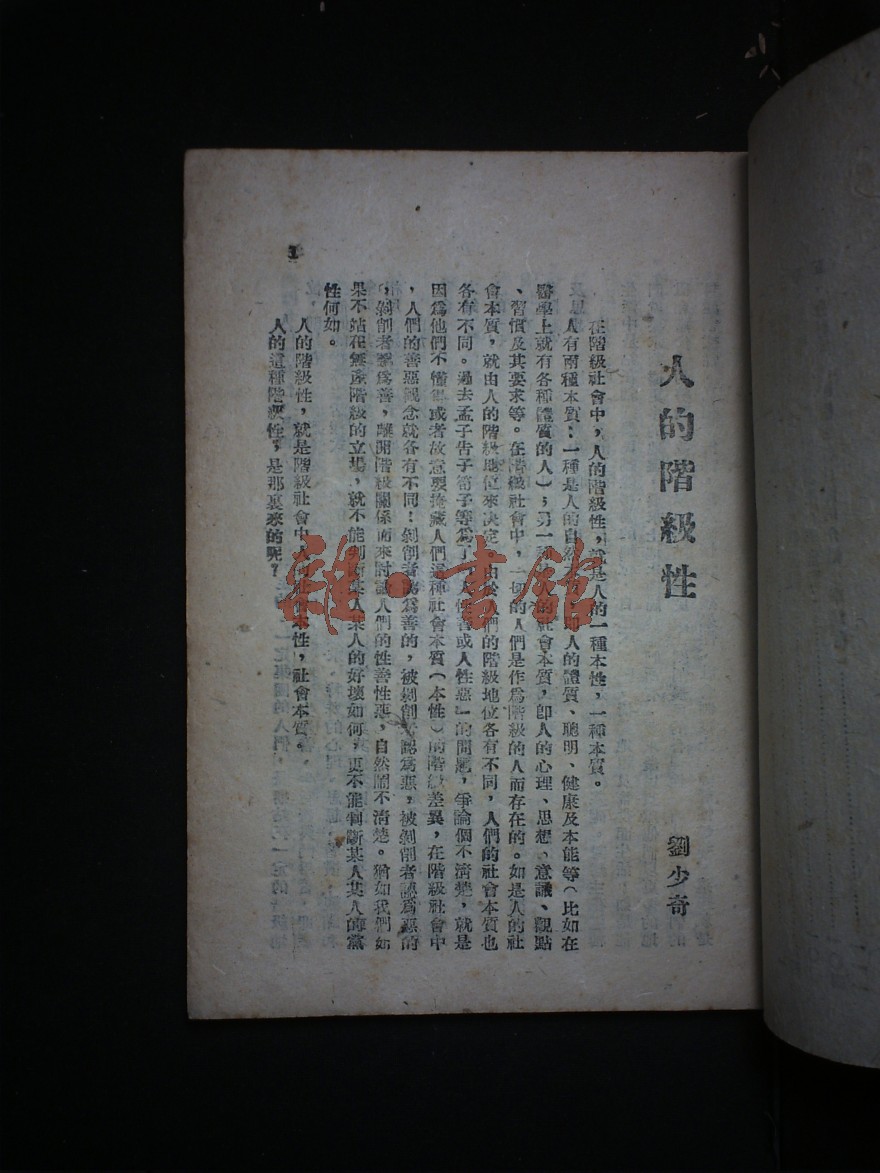 人的階級性
劉少奇
在階級社會中，人的階級性，就是人的一種本性，一種本質。
人有兩種本質：一種是人的自然本質，即人的體質、聰明、健康及本能等（比如在
醫學上就有各種體質的人）；另一種是人的社會本質，即人的心理、思想、意識、觀點
、習慣及其要求等。在階級社會中，一切的人們是作爲階級的人而存在的。如是人的社
會本質，就由人的階級地位來決定。由於人們的階級地位各有不同，人們的社會本質也
各有不同。過去孟子告子荀子等爲了「人性善或人性惡」的問題，爭論個不淸楚，就是
因爲他們不懂得或者故意要掩藏人們這種社會本質（本性）的階級差異，在階級社會中
，人們的善惡觀念就各有不同！剝削者認爲善的，被剝削者認爲惡，被剝削者認爲惡的
，剝削者認爲善，離開階級關係而來討論人們的性善性惡，自然鬧不淸楚。猶如我們如
果不站在無產階級的立場，就不能判斷某人某人的好壞如何，更不能判斷某人某人的黨
性何如。
人的階級性，就是階級社會中人的社會本性，社會本質。
人的這種階級性，是那裏來的呢？
1
雜·書館